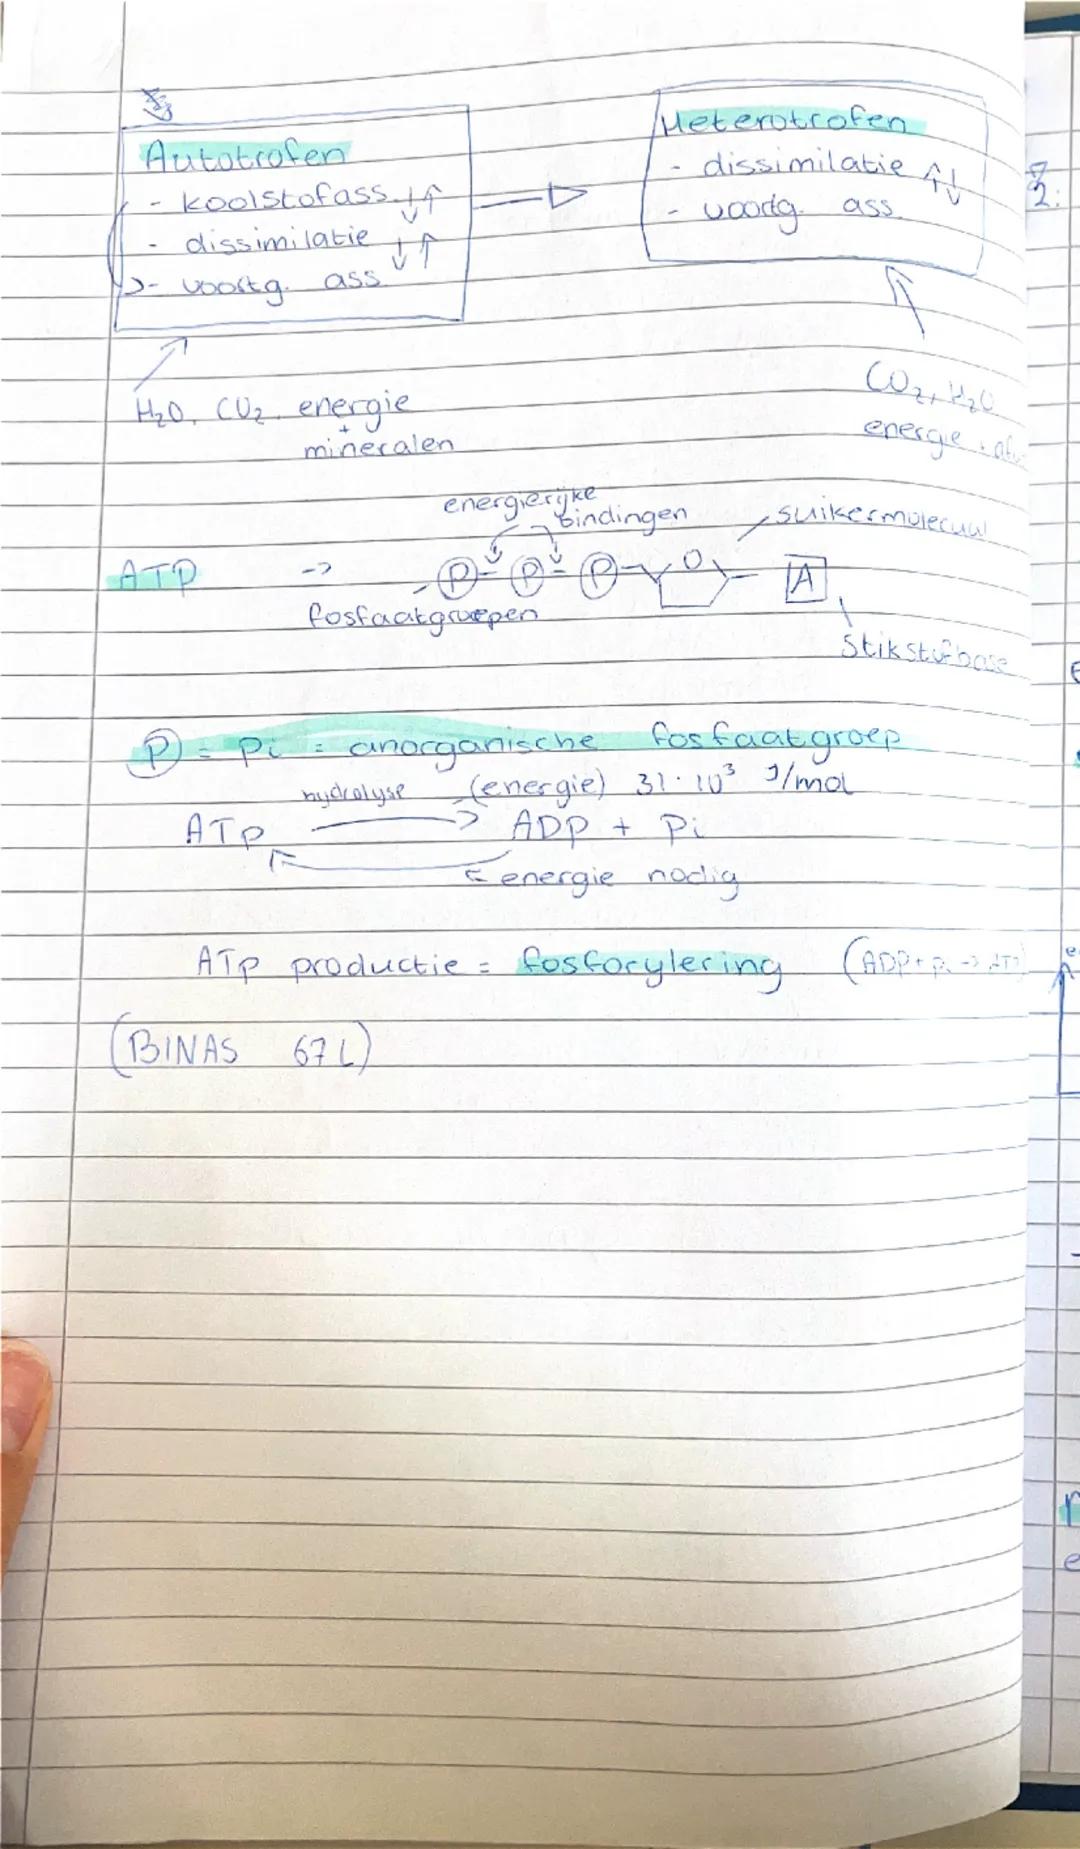 Autotrofen
- koolstofass. ↓↑
- dissimilatie ↓↑
- voortg. ass.
Heterotrofen
- dissimilatie ↑↓
- voortg. ass.
H₂O, CO₂, energie
+
mineralen
CO₂, H₂O
energie
energierijke
bindingen
suikermolecuul
ATP -> P - P - P O A
fosfaatgroepen
Stikstofbase
P = Pi = anorganische fosfaatgroep
hydrolyse (energie) 31·10³ J/mol
ATP → ADP + Pi
← energie nodig
ATP productie = fosforylering (ADP + Pi -> ATP)
(BINAS 67L)
2.